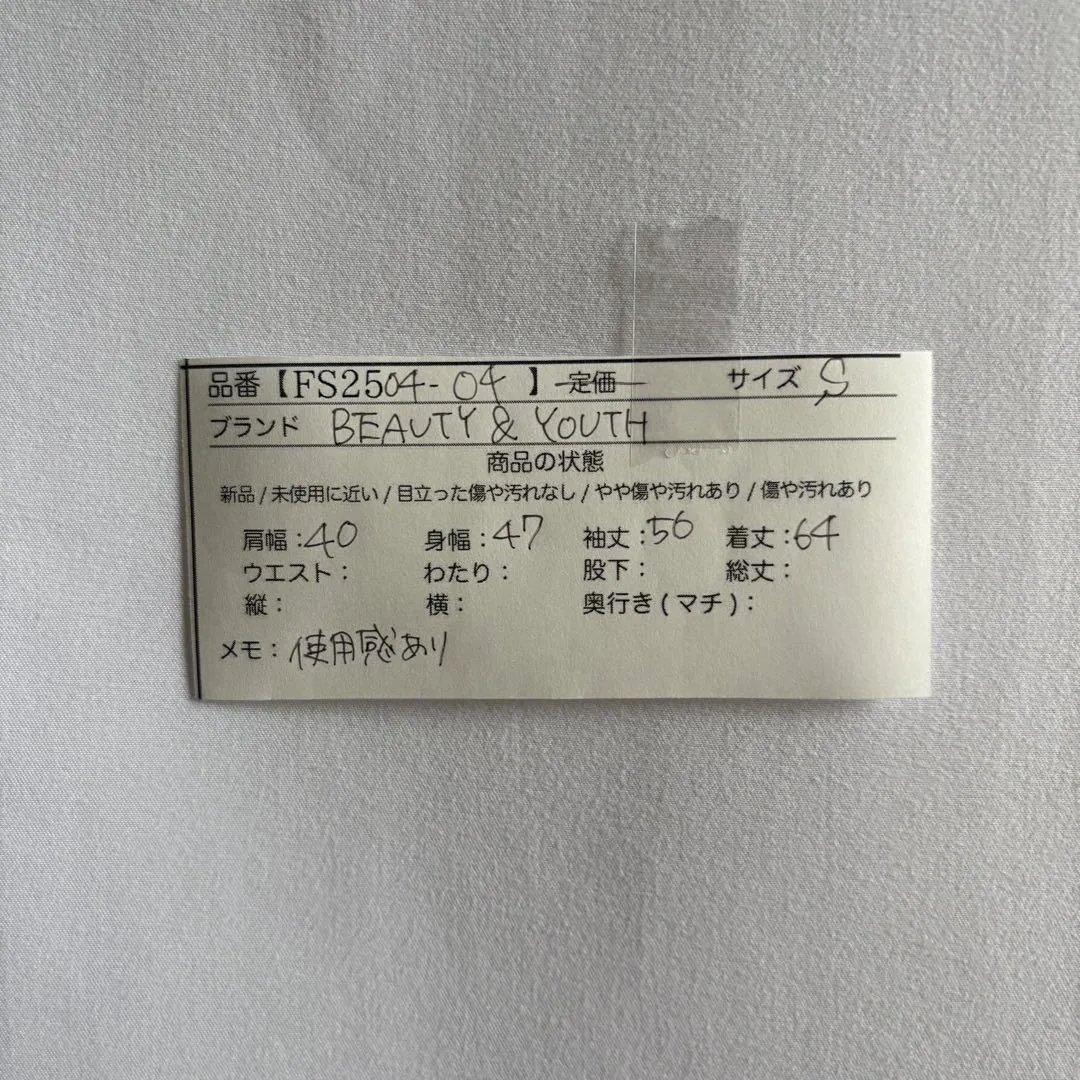 品番【FS2504-04】定価 サイズ S
ブランド BEAUTY & YOUTH
商品の状態
新品 / 未使用に近い / 目立った傷や汚れなし / やや傷や汚れあり / 傷や汚れあり
肩幅：40 身幅：47 袖丈：56 着丈：64
ウエスト： わたり： 股下： 総丈：
縦： 横： 奥行き ( マチ )：
メモ：使用感あり